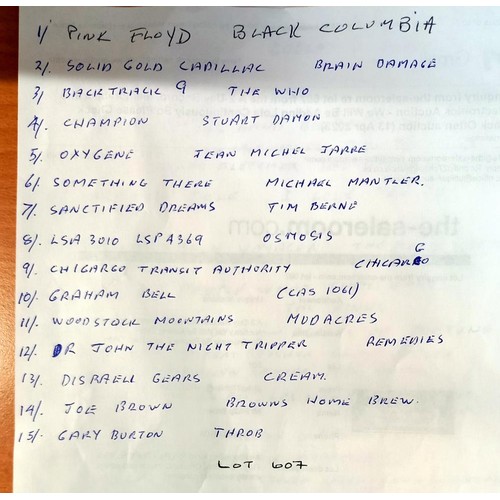 1/ PINK FLOYD BLACK COLUMBIA
2/. SOLID GOLD CADILLAC BRAIN DAMAGE
3/ BACKTRACK 9 THE WHO
4/. CHAMPION STUART DAMON
5/. OXYGENE JEAN MICHEL JARRE
6/. SOMETHING THERE MICHAEL MANTLER.
7/. SANCTIFIED DREAMS TIM BERNE
8/. LSA 3010 LSP 4369 OSMOSIS
9/. CHICARGO TRANSIT AUTHORITY CHICARGO
10/. GRAHAM BELL (CAS 1061)
11/. WOODSTOCK MOUNTAINS MUDACRES
12/. DR JOHN THE NIGHT TRIPPER REMEDIES
13/. DISRAELL GEARS CREAM.
14/. JOE BROWN BROWNS HOME BREW.
15/. GARY BURTON THROB
LOT 607
the-saleroom.com